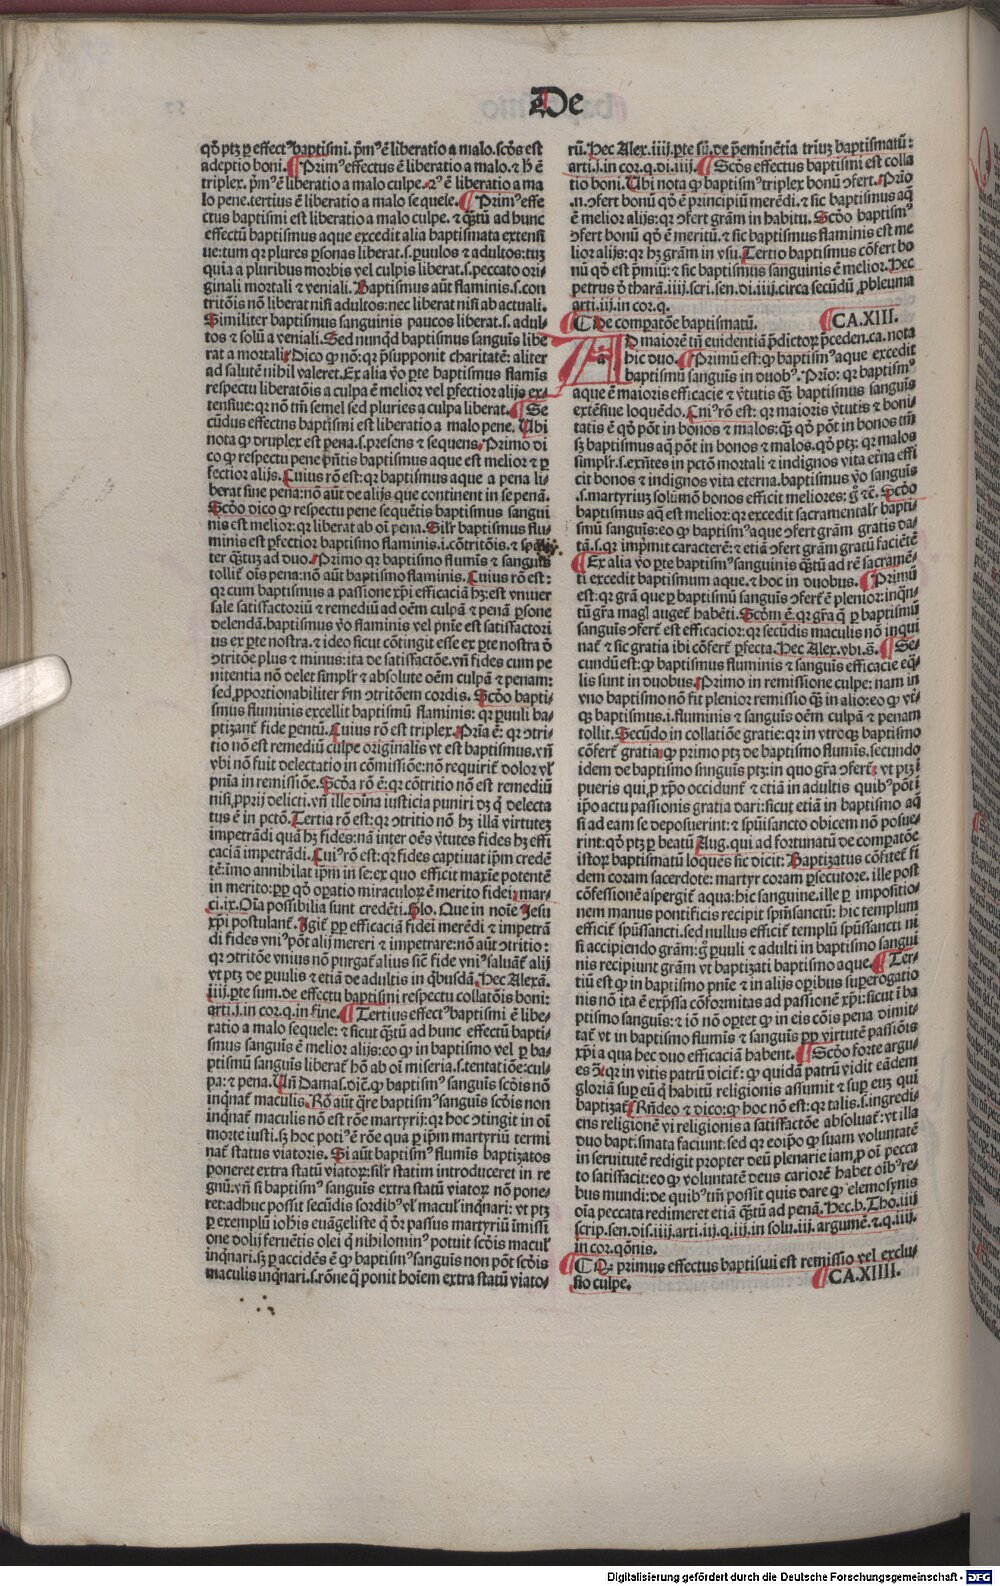 De
qḋ ptꝫ ꝑ effectꝰ baptismi. pͥmꝰ ē liberatio a malo. scḋs est
adeptio boni. Primꝰ effectus ē liberatio a malo. ⁊ h̄ ē
triplex. pͥmꝰ ē liberatio a malo culpe. 2ꝰ ē liberatio a ma
lo pene. tertius ē liberatio a malo sequele. Primꝰ effe
ctus baptismi est liberatio a malo culpe. ⁊ qȝtū ad hunc
effectū baptismus aque excedit alia baptismata extensi
ue: tum qꝛ plures ꝑsonas liberat. s. ꝑuulos ⁊ adultos: tuꝫ
quia a pluribus morbis vel culpis liberat. s. peccato ori-
ginali mortali ⁊ veniali. Baptismus aūt flaminis. s. con
tritōis nō liberat nisi adultos: nec liberat nisi ab actuali.
Similiter baptismus sanguinis paucos liberat. s. adul-
tos ⁊ solū a veniali. Sed nunqd baptismus sanguīs libe
rat a mortali. Dico ꝙ nō: qꝛ p̄supponit charitatē: aliter
ad salutē nihil valeret. Ex alia v̊o ꝑte baptismus flamīs
respectu liberatōis a culpa ē melior vel ꝑfectior alijs ex-
tensiue: qꝛ nō tm̄ semel sed pluries a culpa liberat. Se
cūdus effectus baptismi est liberatio a malo pene. Ubi
nota ꝙ druplex est pena. s. presens ⁊ sequens. Primo di
co ꝙ respectu pene p̄ntis baptismus aque est melior ⁊ ꝑ
fectior alijs. Cuius rō est: qꝛ baptismus aque a pena li-
berat sine pena: nō aūt de alijs que continent in se penā.
Scḋo dico ꝙ respectu pene sequētis baptismus sangui
nis est melior: qꝛ liberat ab oī pena. Silr baptismus flu-
minis est ꝑfectior baptismo flaminis. i. cōtritōis. ⁊
ter qȝtuꝫ ad duo. Primo qꝛ baptismus flumīs ⁊ sanguīs
tollit oīs pena: nō aūt baptismo flaminis. Cuius rō est:
qꝛ cum baptismus a passione xp̄i efficaciā hꝫ: est vniuer
sale satisfactoriū ⁊ remediū ad oēm culpā ⁊ penā ꝑsone
delendā. baptismus v̊o flaminis vel pn̄ie est satisfactori
us ex ꝑte nostra. ⁊ ideo sicut cōtingit esse ex ꝑte nostra d̄
ↄtritōe plus ⁊ minus: ita de satisfactōe. vn̄ fides cum pe
nitentia nō delet simplr ⁊ absolute oēm culpā ⁊ penam:
sed ꝓportionabiliter ẜm ↄtritōem cordis. Scḋo bapti-
smus fluminis excellit baptismū flaminis: qꝛ ꝑuuli ba-
ptizant̄ fide ꝑentū. Cuius rō est triplex. Pr̄ia ē: qꝛ ↄtri-
tio nō est remediū culpe originalis vt est baptismus. vn̄
vbi nō fuit delectatio in cōmissiōe: nō requirit̄ dolor vl̓
pn̄ia in remissiōe. Scḋa rō ē: qꝛ cōtritio nō est remediū
nisi ꝓprij delicti. vn̄ ille diuīa iusticia puniri dꝫ q̄ delecta
tus ē in pctō. Tertia rō est: qꝛ ↄtritio nō hꝫ illā virtuteꝫ
impetrādi quā hꝫ fides: nā inter oēs v̓tutes fides hꝫ effi
caciā impetrādi. Cuiꝰ rō est: qꝛ fides captiuat ip̄m credē
tē: imo annihilat ip̄m in se: ex quo efficit maxīe potentē
in merito: ꝓpꝑ qḋ oꝑatio miraculoꝝ ē merito fidei. mar-
ci. ix. Oīa possibilia sunt credēti. Hlo. Que in noīe Jesu
xp̄i postulant̄. Igit̄ ꝓpꝑ efficaciā fidei merēdi ⁊ impetrā
di fides vniꝰ pōt alij mereri ⁊ impetrare: nō aūt ↄtritio:
qꝛ ↄtritōe vnius nō purgat̄ alius siē fide vniꝰ saluat̄ alij
vt ptꝫ de ꝑuulis ⁊ etiā de adultis in qͥbusdā. Hec Alexā.
iiij. ꝑte sum. de effectu baptismi respectu collatōis boni:
arti. j. in cor. q. in fine. Tertius effectꝰ baptismi ē libe-
ratio a malo sequele: ⁊ sicut qȝtū ad hunc effectū bapti-
smus sanguīs ē melior alijs: eo ꝙ in baptismo vel ꝑ ba-
ptismū sanguīs liberat̄ hō ab oī miseria. s. tentatiōe: cul-
pa: ⁊ pena. Un̄ Damas. dic̄. ꝙ baptismꝰ sanguīs scḋis nō
inqͥnat̄ maculis. Rō aūt q̄re baptismꝰ sanguīs scḋis non
inqͥnat̄ maculis nō est rōe martyrij: qꝛ hoc ↄtingit in oī
morte iusti. sꝫ hoc potiꝰ ē rōe qua ꝑ ip̄m martyriū termi
nat̄ status viatoris. Si aūt baptismꝰ flumīs baptizatos
poneret extra statū viatoꝝ: silr̄ statim introduceret in re
gnū: vn̄ si baptismꝰ sanguīs extra statū viatoꝝ nō pone-
ret: adhuc possit secūdis sordibꝰ vl̓ maculꝭ inqͥnari: vt ptꝫ
ꝑ exemplū ioh̄is euāgeliste q̄ ōr passus martyriū ī missi
one dolij feruētis olei q̄ nihilominꝰ potuit scḋis maculꝭ
inqͥnari. sꝫ ꝑ accidēs ē ꝙ baptismꝰ sanguīs non pōt scḋis
maculis inqͥnari. s. rōne q̄ ponit hoīem extra statū viato-
rū. Hec Alex. iiij. ꝑte sū. de p̄eminētia triuꝫ baptismatū:
arti. j. in cor. q. di. iiij. Scḋs effectus baptismi est colla
tio boni. Ubi nota ꝙ baptismꝰ triplex bonū ↄfert. Prīo
.n. ↄfert bonū qḋ ē principiū merēdi. ⁊ sic baptismus aq̄
ē melior alijs: qꝛ ↄfert grām in habitu. Scḋo baptismꝰ
ↄfert bonū qḋ ē meritū. ⁊ sic baptismus flaminis est me
lior alijs: qꝛ hꝫ grām in vsu. Tertio baptismus cōfert bo
nū qḋ est p̄miū: ⁊ sic baptismus sanguinis ē melior. Hec
petrus d̓ tharā. iiij. scri. sen. di. iiij. circa secūdū ꝓbleuma
arti. iij. in cor. q.
De compatōe baptismatū. CA. XIII.
AD maiorē tn̄ euidentiā p̄dictoꝝ p̄ceden. ca. nota
hic duo. Primū est: ꝙ baptismꝰ aque excedit
baptismū sanguīs in duobꝰ. Prīo: qꝛ baptismꝰ
aque ē maioris efficacie ⁊ v̓tutis qȝ baptismus sanguīs
extēsiue loquēdo. Cuiꝰ rō est: qꝛ maioris v̓tutis ⁊ boni-
tatis ē qḋ pōt in bonos ⁊ malos: qȝ qḋ pōt in bonos tm̄
sꝫ baptismus aq̄ pōt in bonos ⁊ malos. qḋ ptꝫ: qꝛ malos
simplr̄. s. exn̄tes in pctō mortali ⁊ indignos vita et̓na effi
cit bonos ⁊ indignos vita eterna. baptismus v̊o sanguīs
.s. martyriū solūmō bonos efficit meliores: gͦ ⁊c̄. Scḋo
baptismus aq̄ est melior: qꝛ excedit sacramentalr̄ bapti-
smū sanguīs: eo ꝙ baptismꝰ aque ↄfert grām gratis da-
tā. s. qꝛ imp̄mit caracterē: ⁊ etiā ↄfert grām gratū faciētē
Ex alia v̊o ꝑte baptismꝰ sanguinis qȝtū ad rē sacramē-
ti excedit baptismum aque. ⁊ hoc in duobus. Primū
est: qꝛ grā que ꝑ baptismū sanguīs ↄfert̄ ē plenior: inqͣn-
tū gr̄a magl̓ auget̄ habēti. Scḋm ē: qꝛ gr̄a q̄ ꝑ baptismū
sanguīs ↄfert̄ est efficacior: qꝛ secūdis maculis nō inqui
nat̄ ⁊ sic gratia ibi cōfert̄ ꝑfecta. Hec Alex. vbi. s̄. Se-
cundū est: ꝙ baptismus fluminis ⁊ sanguīs efficacie eq̄-
lis sunt in duobus. Primo in remissione culpe: nam in
vno baptismo nō fit plenior remissio qȝ in alio: eo ꝙ vt̓-
qȝ baptismus. i. fluminis ⁊ sanguīs oēm culpā ⁊ penam
tollit. Secūdo in collatiōe gratie: qꝛ in vtroqȝ baptismo
cōfert̄ gratia: ꝙ primo ptꝫ de baptismo flumīs. secundo
idem de baptismo snnguīs ptꝫ: in quo gr̄a ↄfert̄: vt ptꝫ ī
pueris qui ꝓ xp̄o occidunt̄ ⁊ etiā in adultis quibꝰ pōt ī
ip̄o actu passionis gratia dari: sicut etiā in baptismo aq̄
si ad eam se deposuerint: ⁊ sp̄uīsancto obicem nō posue-
rint: qḋ ptꝫ ꝑ beatū Aug. qui ad fortunatū de compatōe
istoꝝ baptismatū loquēs sic dicit: Baptizatus cōfitet̄ fi
dem coram sacerdote: martyr coram ꝑsecutore. ille post
cōfessionē aspergit̄ aqua: hic sanguine. ille ꝑ impositio-
nem manus pontificis recipit spm̄sanctū: hic templum
efficit̄ sp̄ussancti. sed nullus efficit̄ templū sp̄ussancti ni
si accipiendo grām: gͦ ꝑuuli ⁊ adulti in baptismo sangui
nis recipiunt grām vt baptizati baptismo aque. Ter-
tiū est ꝙ in baptismo pn̄ie ⁊ in alijs oꝑibus suꝑerogatio
nis nō ita ē exp̄ssa cōformitas ad passionē xp̄i: sicut ī ba
ptismo sanguīs: ⁊ iō nō oꝑtet ꝙ in eis cōis pena dimit-
tat̄ vt in baptismo flumīs ⁊ sanguīs ꝓpꝑ virtutē passiōis
xp̄i a qua hec duo efficaciā habent. Scḋo forte argu-
es ꝯͣ: qꝛ in vitis patrū dicit̄: ꝙ quidā patrū vidit eādem
gloriā suꝑ eū q̄ habitū religionis assumit ⁊ suꝑ euꝫ qui
baptizat̄. Rn̄deo ⁊ dico: ꝙ hoc nō est: qꝛ talis. s. ingredi-
ens religionē vi religionis a satisfactōe absoluat̄: vt illa
duo bapt̓smata faciunt: sed qꝛ eoip̄o ꝙ suam voluntatē
in seruitutē redigit propter deū plenarie iam ꝓ oī pecca
to satisfacit: eo ꝙ voluntatē deus cariorē habet oībꝰ re-
bus mundi: de quibꝰ tm̄ possit quis dare ꝙ elemosynis
oīa peccata redimeret etiā qȝtū ad penā. Hec. b. Tho. iiij
scrip. sen. dis. iiij. arti. iij. q. iij. in solu. iij. argumē. ⁊. q. iiij.
in cor. qōnis.
Qꝛ primus effectus baptisiui est remissio vel exclu-
sio culpe. CA. XIIII.
Digitalisierung gefördert durch die Deutsche Forschungsgemeinschaft - DFG